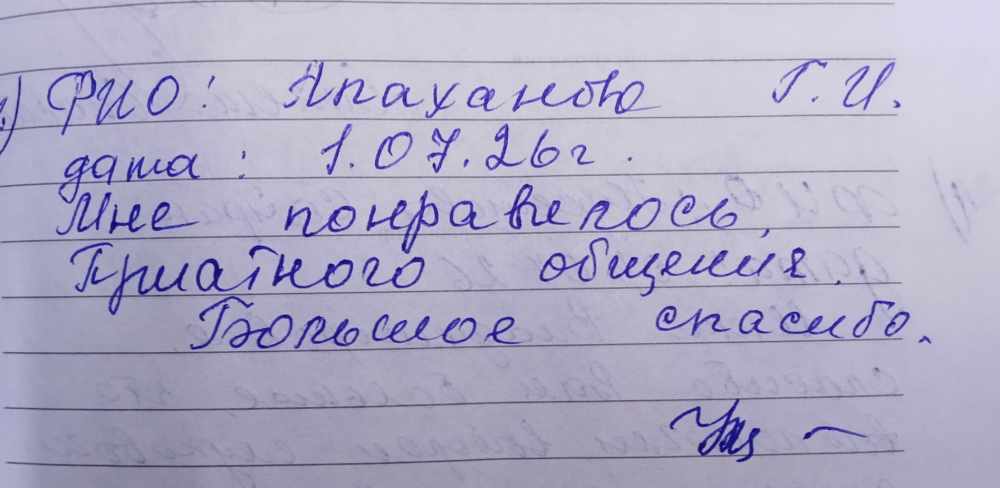 ФИО: Апаханова Г.И.
дата: 1.07.26г.
Мне понравелось,
Приатного общения.
Большое спасибо.